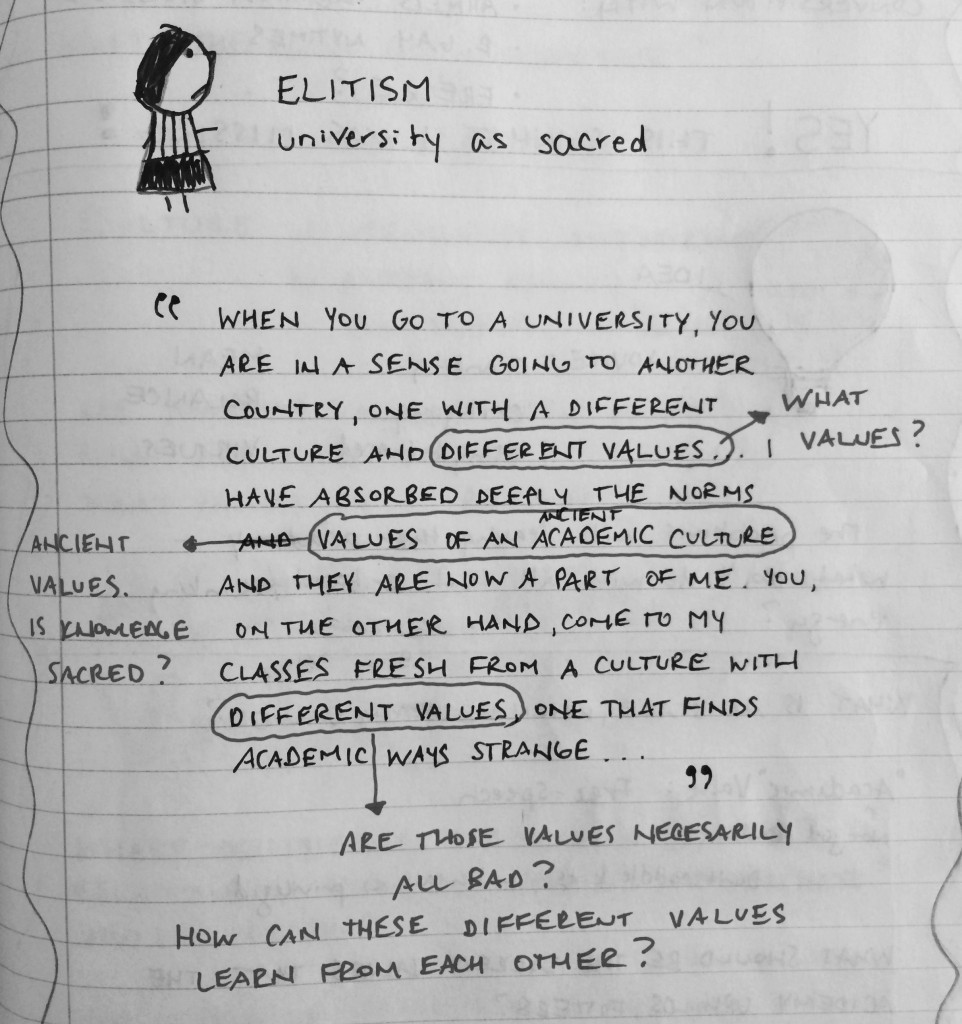 ELITISM
university as sacred
“ WHEN YOU GO TO A UNIVERSITY, YOU
ARE IN A SENSE GOING TO ANOTHER
COUNTRY, ONE WITH A DIFFERENT
CULTURE AND DIFFERENT VALUES.. I
HAVE ABSORBED DEEPLY THE NORMS
AND VALUES OF AN ANCIENT ACADEMIC CULTURE
AND THEY ARE NOW A PART OF ME. YOU,
ON THE OTHER HAND, COME TO MY
CLASSES FRESH FROM A CULTURE WITH
DIFFERENT VALUES, ONE THAT FINDS
ACADEMIC WAYS STRANGE... ”
WHAT
VALUES?
ANCIENT
VALUES.
IS KNOWLEDGE
SACRED?
ARE THOSE VALUES NECESARILY
ALL BAD?
HOW CAN THESE DIFFERENT VALUES
LEARN FROM EACH OTHER?